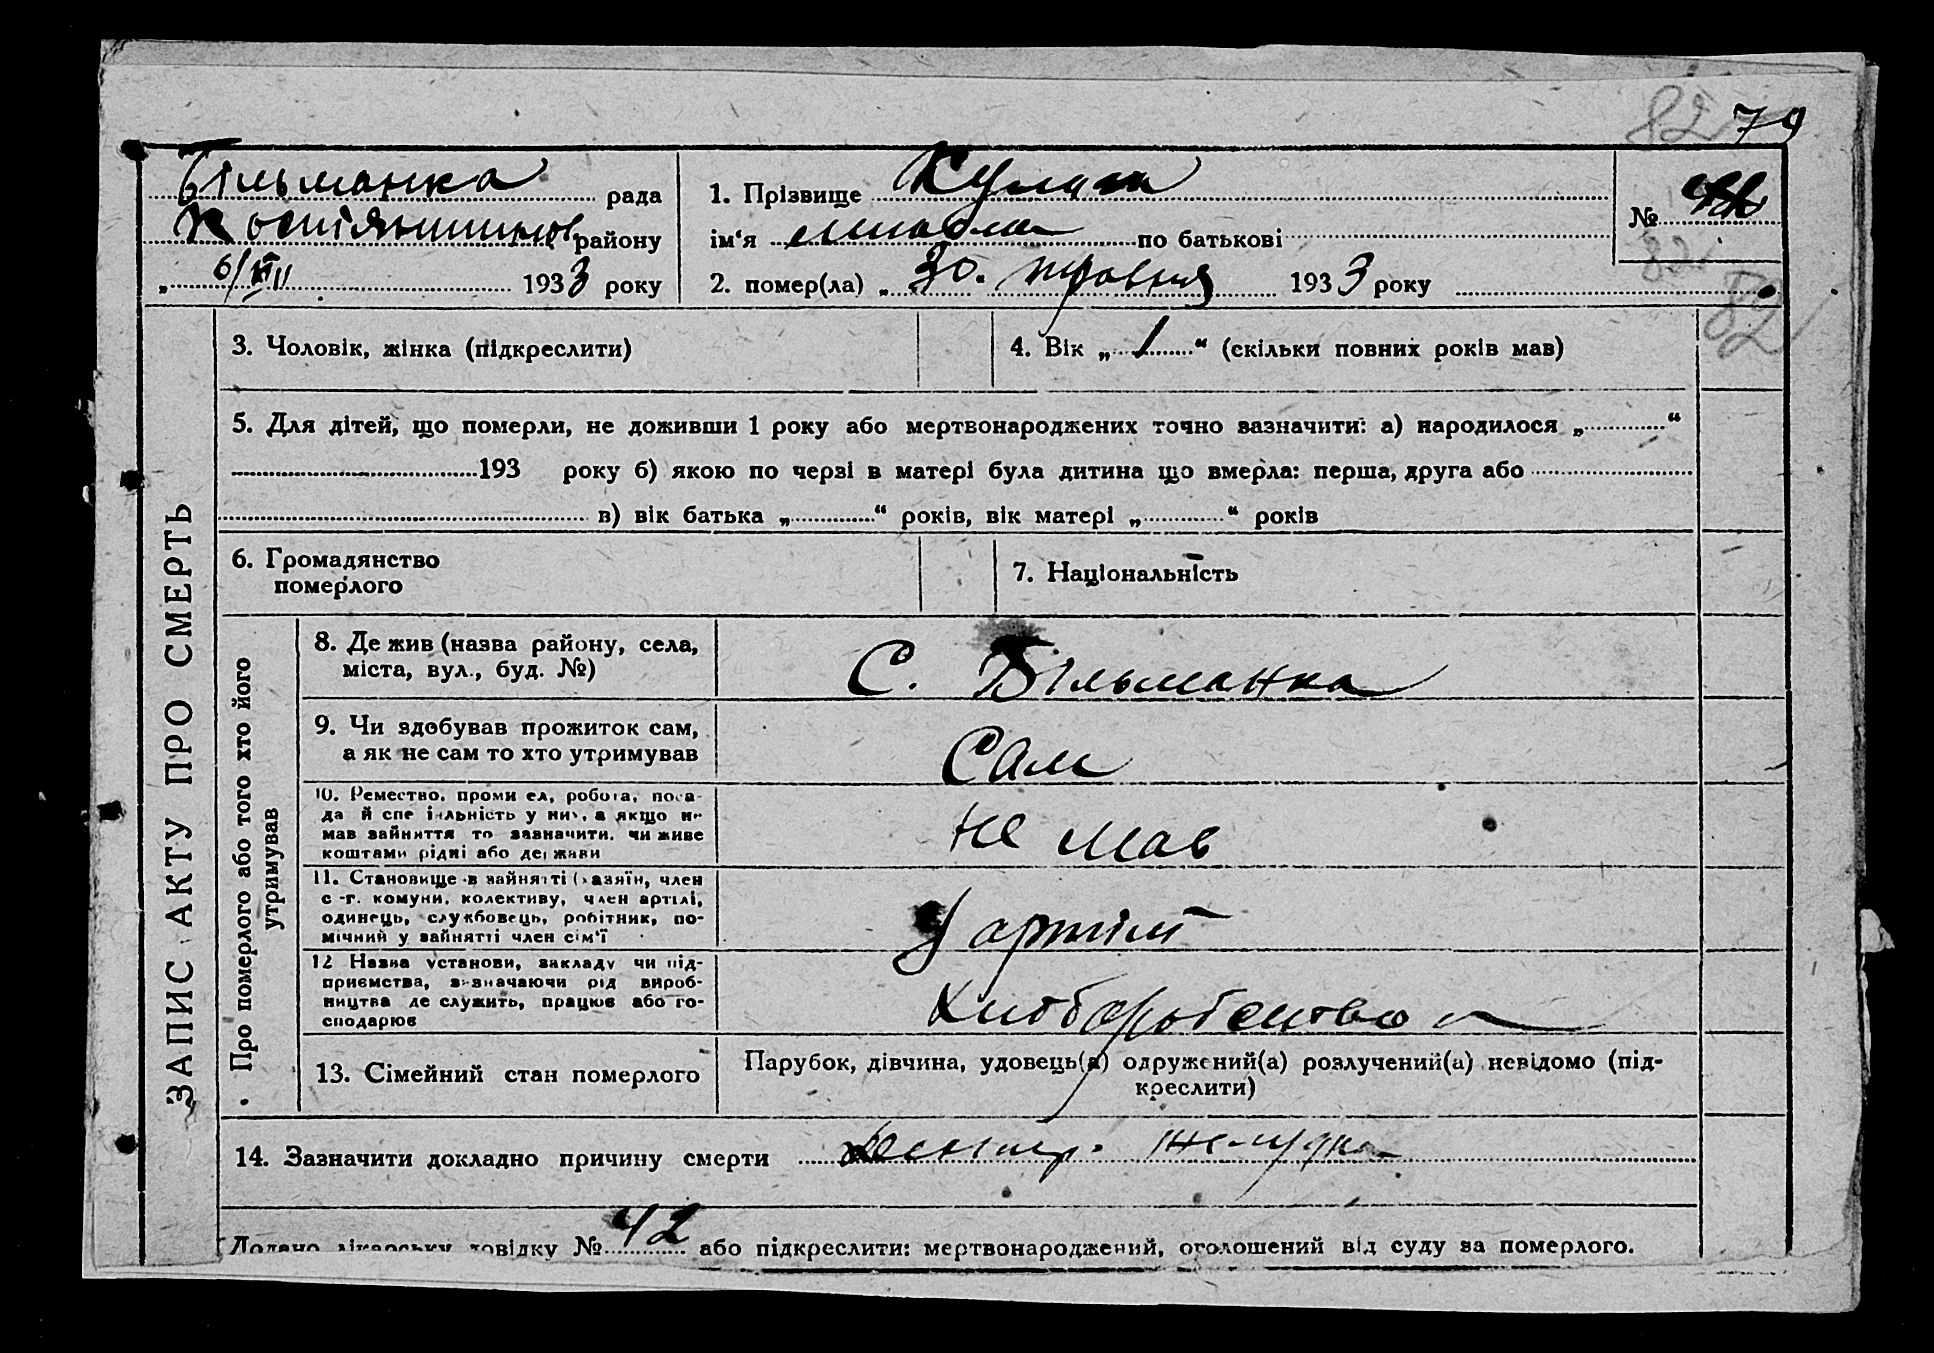 82 79
Більманка рада
районy
6/VII 1933 року
1. Прізвище
ім'я по батькові
2. помер(ла) „ 30. травня 1933 року
№
82
82
ЗАПИС АКТУ ПРО СМЕРТЬ
3. Чоловік, жінка (підкреслити)
4. Вік „ 1 “ (скільки повних років мав)
5. Для дітей, що померли, не доживши 1 року або мертвонароджених точно зазначити: а) народилося „ “
193 року б) якою по черзі в матері була дитина що вмерла: перша, друга або
в) вік батька „ “ років, вік матері „ “ років
6. Громадянство
померлого
7. Національність
Про померлого або того хто його
утримував
8. Де жив (назва району, села,
міста, вул., буд. №)
С. Більманка
9. Чи здобував прожиток сам,
а як не сам то хто утримував
Сам
10. Ремество, проми ел, робота, поса-
да й спе іальність у них, а якщо не
мав зайняття то зазначити, чи живе
коштами рідні або держави
не мав
11. Становище в зайнятті (хазяїн, член
с -г. комуни, колективу, член артілі,
одинець, службовець, робітник, по-
мічний у зайнятті член сім'ї
У артілі
12 Назва установи, закладу чи під-
приємства, визначаючи рід вироб-
ництва де служить, працює або го-
сподарює
13. Сімейний стан померлого
Парубок, дівчина, удовець(а) одружений(а) розлучений(а) невідомо (під-
креслити)
14. Зазначити докладно причину смерти
Додано лікарську довідку № 42 або підкреслити: мертвонароджений, оголошений від суду за померлого.